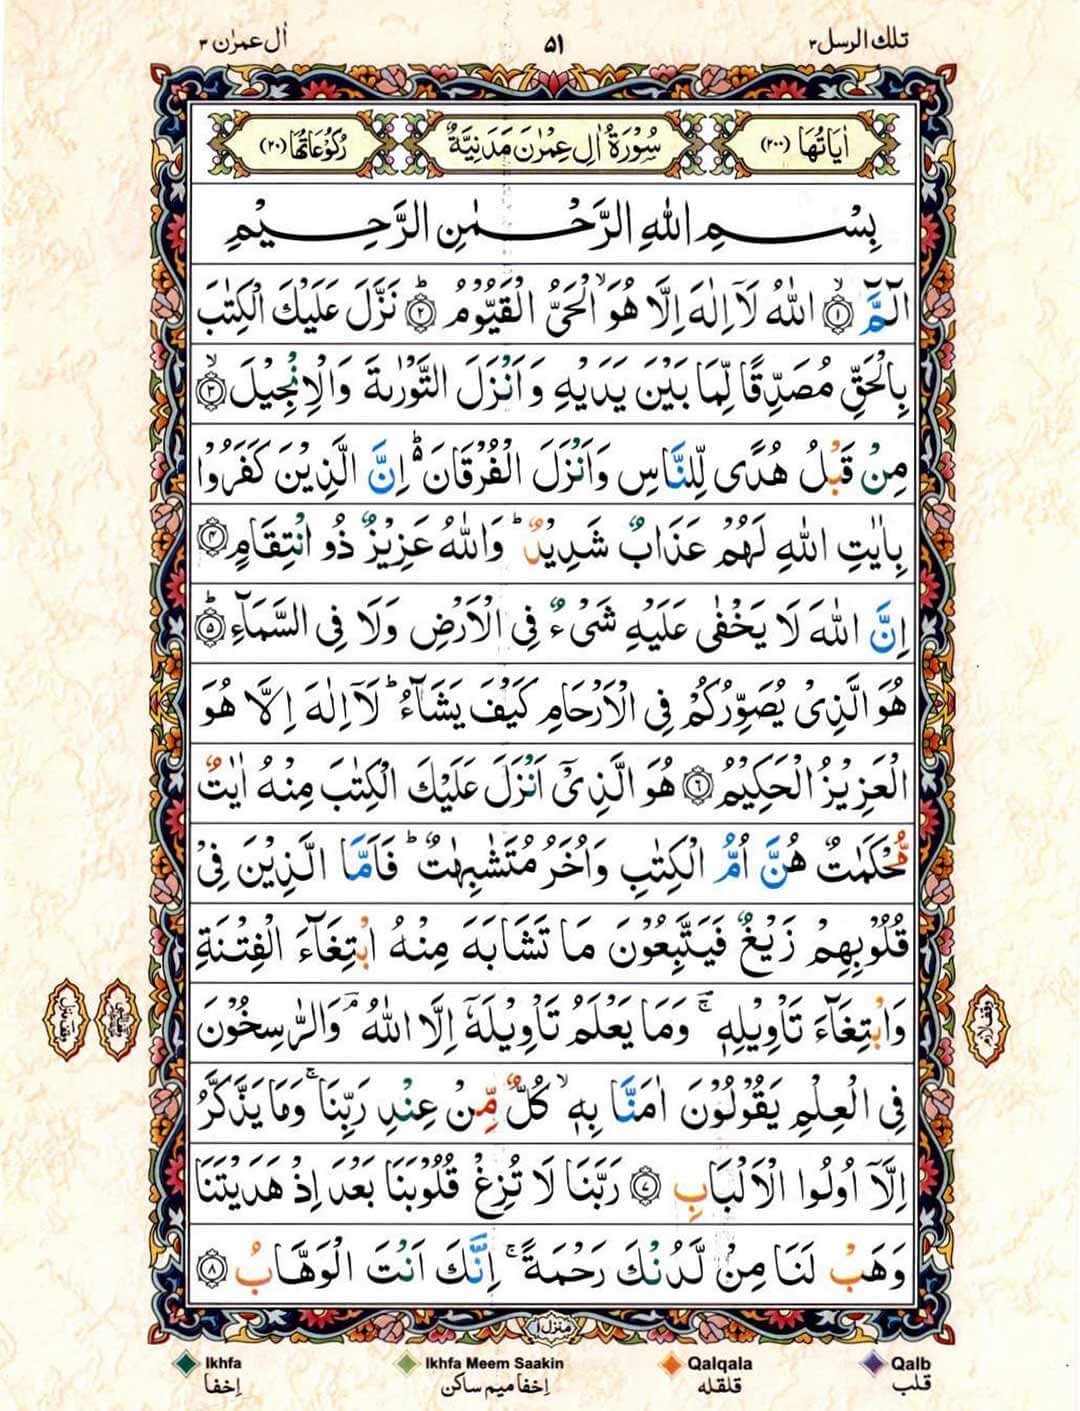 تلك الرسل ٣ ۵۱ اٰل عمرٰن ٣
اٰيَاتُهَا (٢٠٠) سُوْرَةُ اٰلِ عِمْرٰنَ مَدَنِيَّةٌ رُكُوْعَاتُهَا (٢٠)
بِسْمِ اللّٰهِ الرَّحْمٰنِ الرَّحِيْمِ
الٓمّٓ ۙ﴿١﴾ اللّٰهُ لَاۤ اِلٰهَ اِلَّا هُوَ ۙ الْحَىُّ الْقَيُّوْمُ ؕ﴿٢﴾ نَزَّلَ عَلَيْكَ الْكِتٰبَ
بِالْحَقِّ مُصَدِّقًا لِّمَا بَيْنَ يَدَيْهِ وَاَنْزَلَ التَّوْرٰىةَ وَالْاِنْجِيْلَ ۙ﴿٣﴾
مِنْ قَبْلُ هُدًى لِّلنَّاسِ وَاَنْزَلَ الْفُرْقَانَ ؕ۬ اِنَّ الَّذِيْنَ كَفَرُوْا
بِاٰيٰتِ اللّٰهِ لَهُمْ عَذَابٌ شَدِيْدٌ ؕ وَاللّٰهُ عَزِيْزٌ ذُو انْتِقَامٍ ﴿۴﴾
اِنَّ اللّٰهَ لَا يَخْفٰى عَلَيْهِ شَىْءٌ فِى الْاَرْضِ وَلَا فِى السَّمَآءِ ؕ﴿۵﴾
هُوَ الَّذِىْ يُصَوِّرُكُمْ فِى الْاَرْحَامِ كَيْفَ يَشَآءُ ؕ لَاۤ اِلٰهَ اِلَّا هُوَ
الْعَزِيْزُ الْحَكِيْمُ ﴿٦﴾ هُوَ الَّذِىْۤ اَنْزَلَ عَلَيْكَ الْكِتٰبَ مِنْهُ اٰيٰتٌ
مُّحْكَمٰتٌ هُنَّ اُمُّ الْكِتٰبِ وَاُخَرُ مُتَشٰبِهٰتٌ ؕ فَاَمَّا الَّذِيْنَ فِىْ
قُلُوْبِهِمْ زَيْغٌ فَيَتَّبِعُوْنَ مَا تَشَابَهَ مِنْهُ ابْتِغَآءَ الْفِتْنَةِ
وَابْتِغَآءَ تَاْوِيْلِهٖ ۚ وَمَا يَعْلَمُ تَاْوِيْلَهٗۤ اِلَّا اللّٰهُ ۘ وَالرّٰسِخُوْنَ
فِى الْعِلْمِ يَقُوْلُوْنَ اٰمَنَّا بِهٖ ۙ كُلٌّ مِّنْ عِنْدِ رَبِّنَا ۚ وَمَا يَذَّكَّرُ
اِلَّاۤ اُولُوا الْاَلْبَابِ ﴿٧﴾ رَبَّنَا لَا تُزِغْ قُلُوْبَنَا بَعْدَ اِذْ هَدَيْتَنَا
وَهَبْ لَنَا مِنْ لَّدُنْكَ رَحْمَةً ۚ اِنَّكَ اَنْتَ الْوَهَّابُ ﴿٨﴾
وقف لازم
وقف منزل
منزل ١
Ikhfa Ikhfa Meem Saakin Qalqala Qalb
اِخفا اِخفا ميم ساكن قلقله قلب